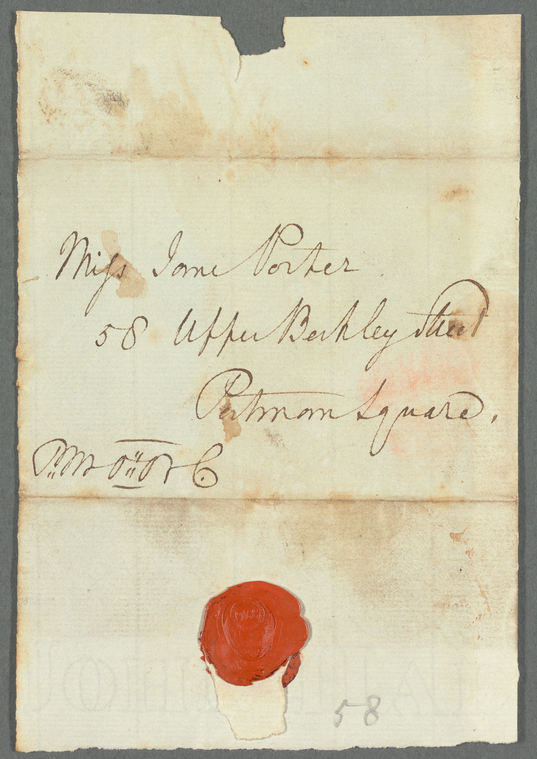 Miss Jane Porter.
58 Upper Berkley Street
Portman Square.
58